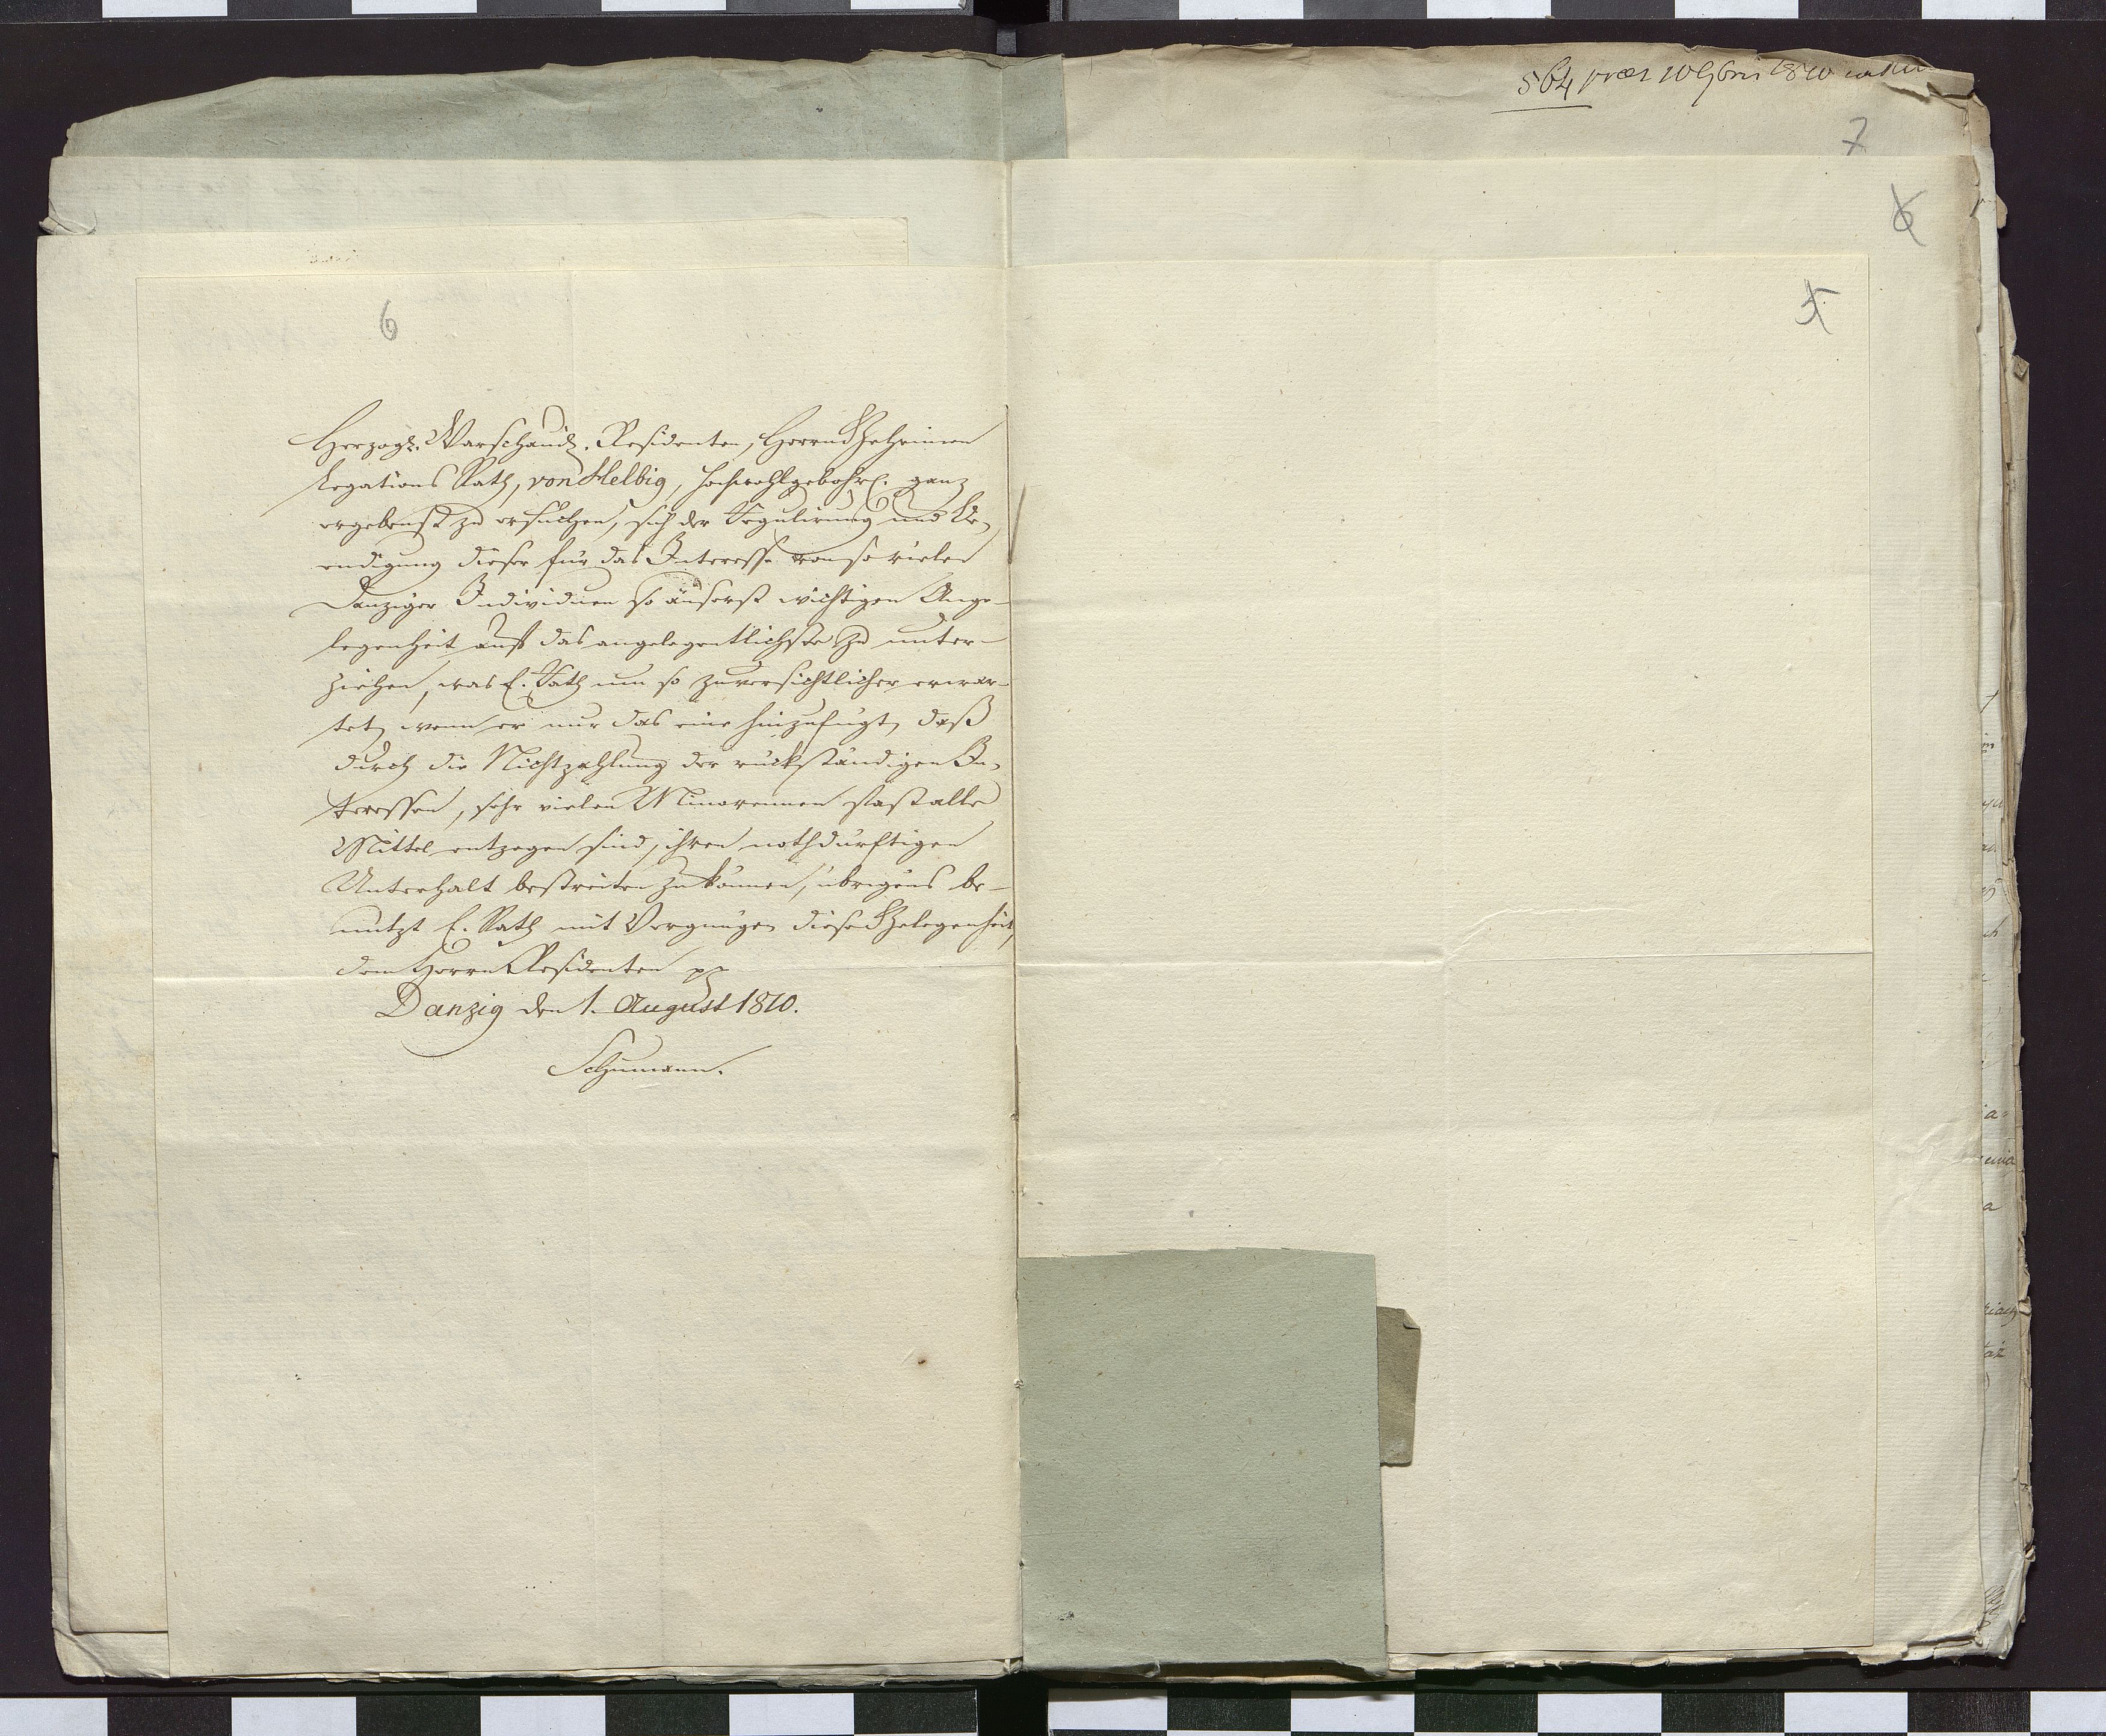 564 præs 10 9bris 1810
7
6
5
6
Herzogl. Warschausch. Residenten, Herrn Geheimen
Legations Rath, von Helbig, Hochwohlgebohrl. ganz
ergebenst zu ersuchen, sich der Regulirung und Be-
endigung dieser für das Interesse von so vielen
Danziger Individuen so äußerst wichtigen Ange-
legenheit aufs das angelegentlichste zu unter-
ziehen, was E. Rath um so zuversichtlicher erwar-
tet, wenn er nur das eine hinzufügt, daß
durch die Nichtzahlung der rückständigen In-
teressen, sehr vielen Minorennen fast alle
Mittel entzogen sind, ihren nothdürftigen
Unterhalt bestreiten zu können, übrigens be-
nutzt E. Rath mit Vergnügen diese Gelegenheit,
dem Herrn Residenten pp
Danzig den 1. August 1810.
Schumann.